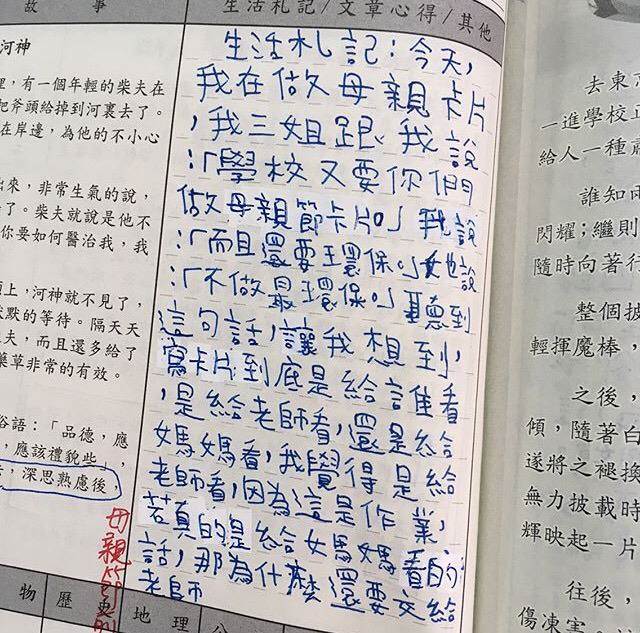 故 事
河神
裡，有一個年輕的柴夫在
把斧頭給掉到河裏去了。
在岸邊，為他的不小心
出來，非常生氣的說，
了。柴夫就說是他不
你要如何醫治我，我
頭上，河神就不見了，
默默的等待。隔天天
夫，而且還多給了
藥草非常的有效。
俗語：「品德，應
，應該禮貌些，
，深思熟慮後，
母親節的
生活札記/文章心得/其他
生活札記：今天，
我在做母親卡片
，我三姐跟我說
：「學校又要你們
做母親節卡片。」我說
：「而且還要環保。」她說
：「不做最環保。」聽到
這句話，讓我想到，
寫卡片到底是給誰看
，是給老師看，還是給
媽媽看，我覺得是給
老師看，因為這是作業，
若真的是給媽媽看的
話，那為什麼還要交給
老師
物 歷史 地理
去東
一進學校正
給人一種肅
誰知兩
閃耀；繼則
隨時向著行
整個披
輕揮魔棒，
之後，
傾，隨著白
遂將之褪換
無力披載時
輝映起一片
往後，
傷凍害。